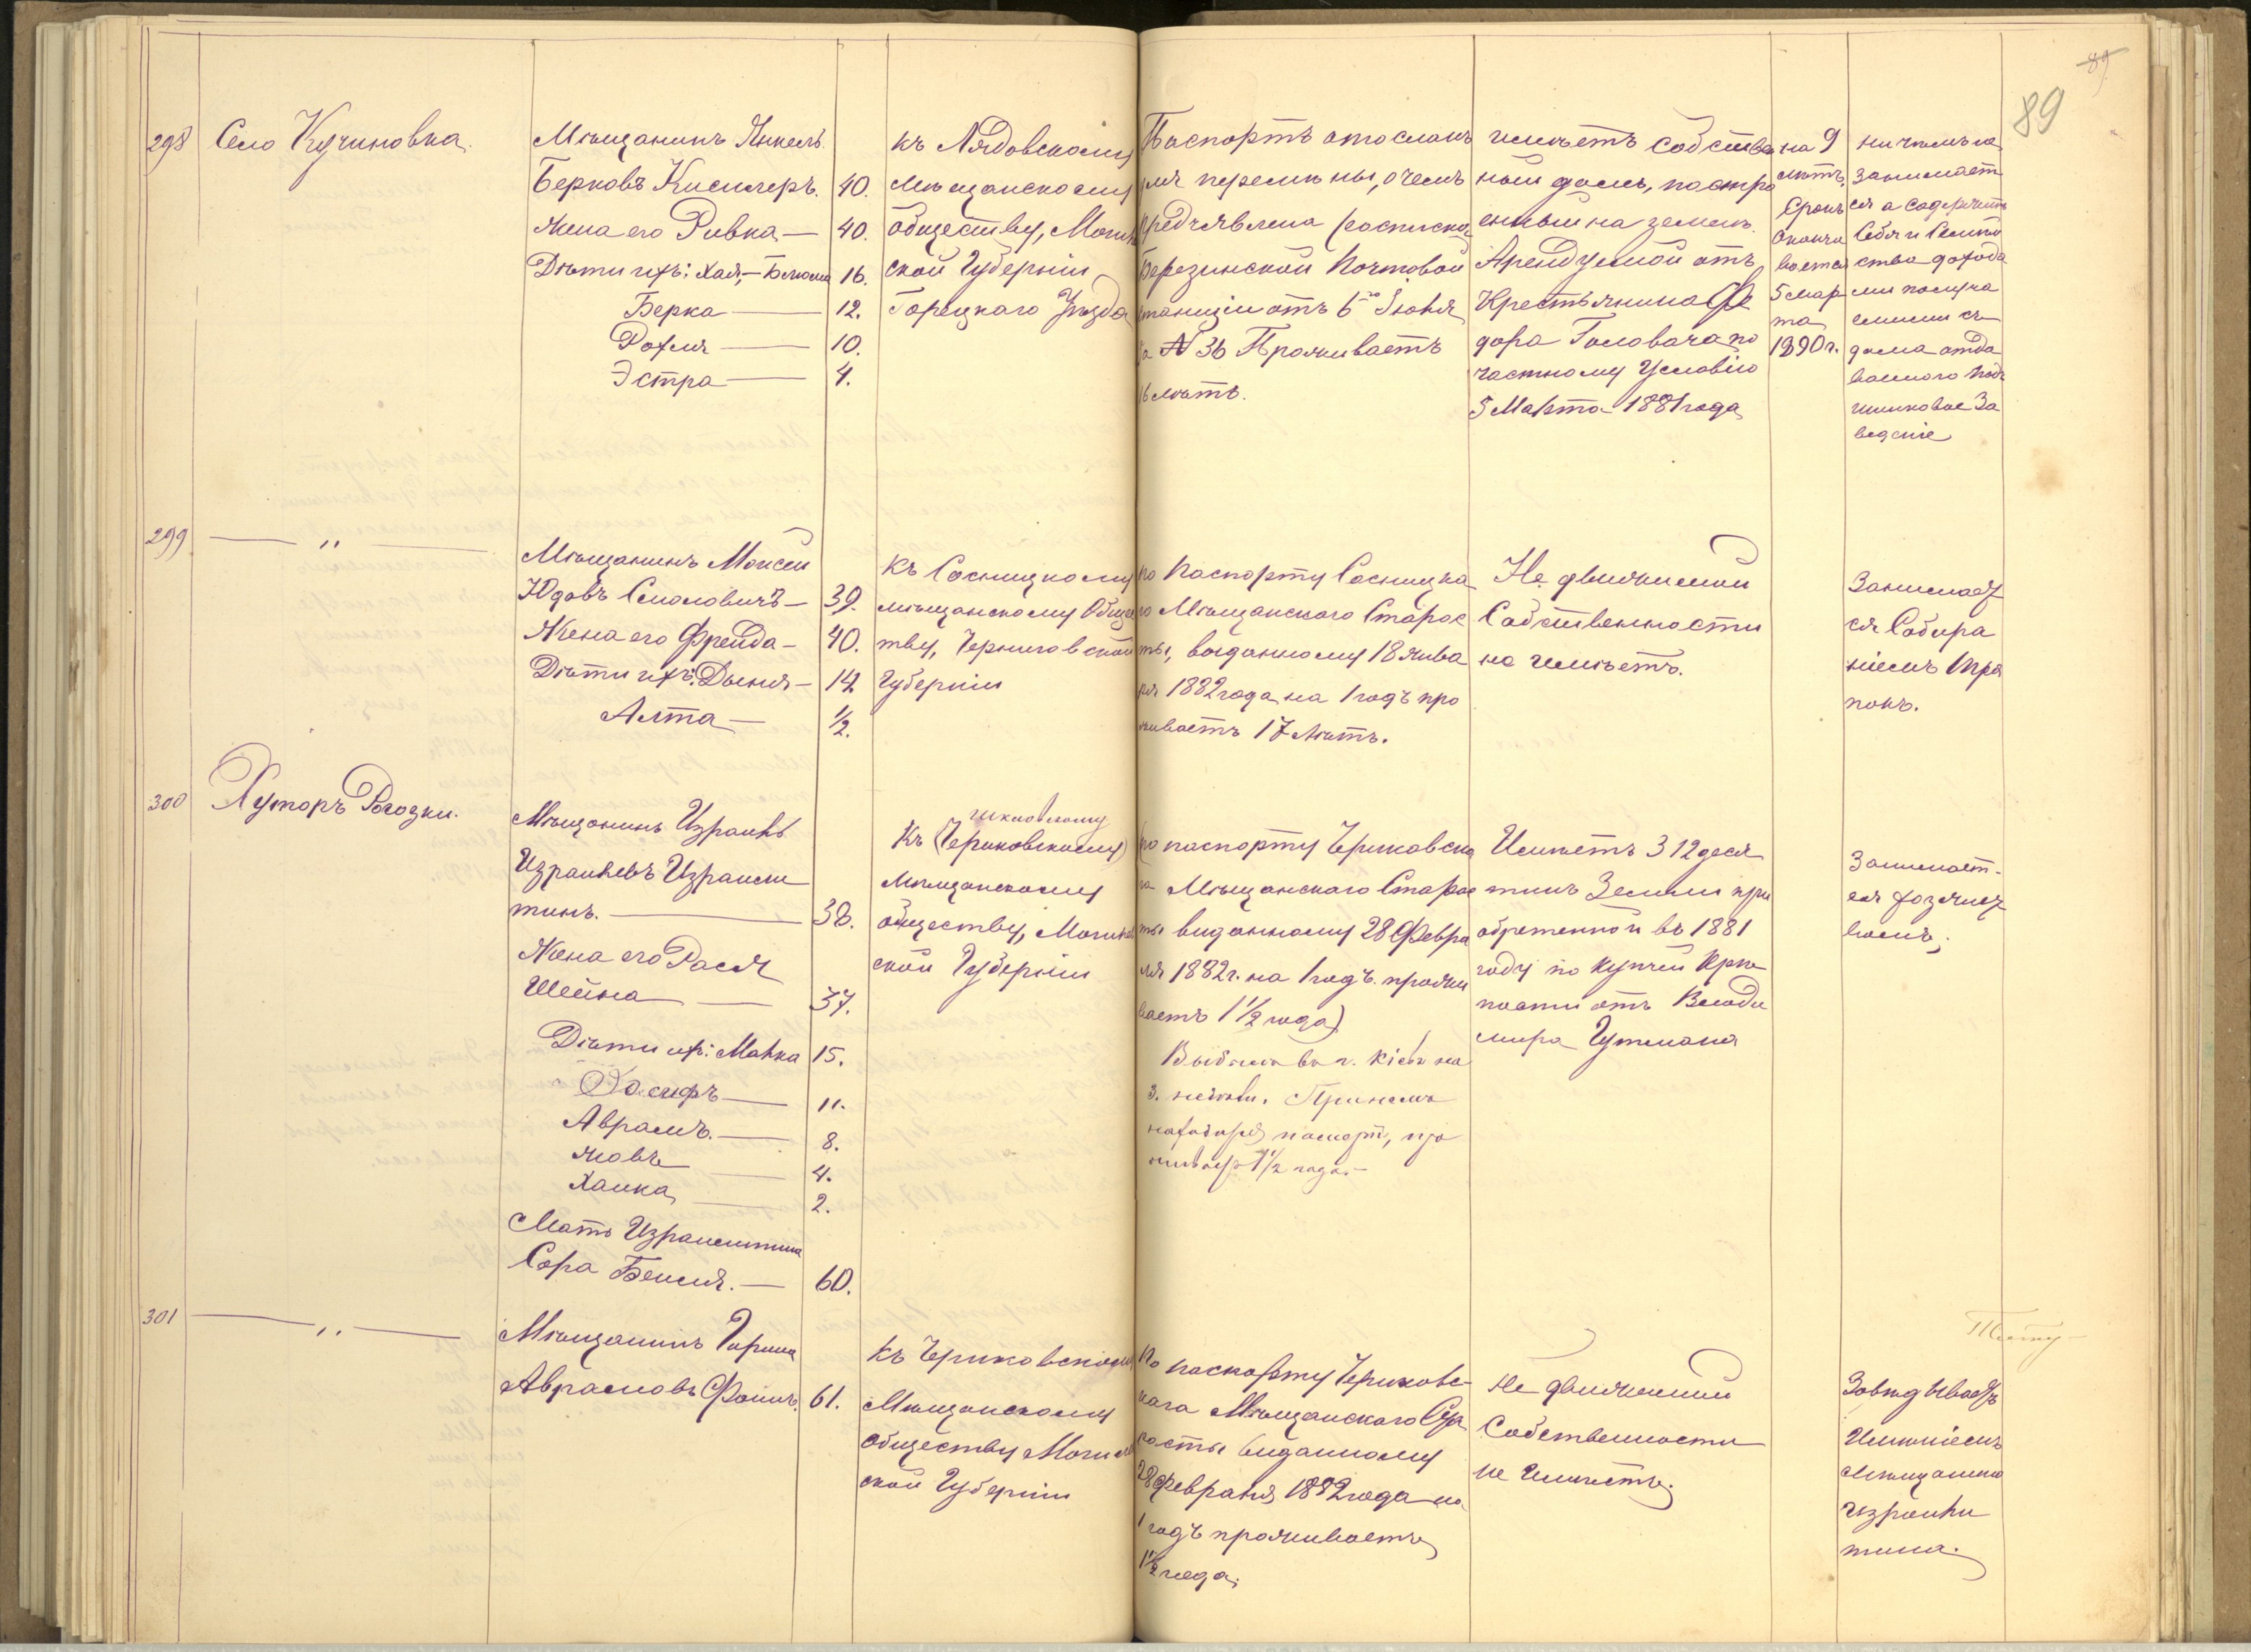 89
89
298 Село Кучиновка.
Мѣщанинъ Янкель
Берковъ Кисилеръ. 40.
Жена его Ривка — 40.
Дѣти ихъ: Хая, — Блюма 16.
Берка — 12.
Рохля — 10.
Эстра — 4.
Къ Лядовскому
мѣщанскому
обществу, Могилев
ской Губерніи
Горецкаго Уѣзда
Паспортъ отосланъ
для перемѣны, о чемъ
предъявлена росписка
Березинской Почтовой
станціи отъ 6го Іюня
за № 36 Проживаетъ
16 лѣтъ.
имѣетъ собствен
ный домъ, постро
енный на землѣ
Арендуемой отъ
Крестьянина Фе
дора Головача по
частному Условію
5 Марта 1881 года
на 9
лѣтъ.
Срокъ
оканчи
вается
5 мар
та
1890 г.
ничѣмъ не
занимает
ся а содержитъ
себя и Семей
ство дохода
ми получа
емыми съ
дома отда
ваемого подъ
шинковое За
веденіе
299 — " —
Мѣщанинъ Моисей
Юдовъ Смоловичъ — 39.
Жена его Фрейда — 40.
Дѣти ихъ: Дыня — 14
Алта — 1/2.
Къ Сосницкому
мѣщанскому Общес
тву, Черниговской
Губерніи
по Паспорту Сосницка
го Мѣщанского Старос
ты, выданному 18 Янва
ря 1882 года на 1 годъ про
живаетъ 17 лѣтъ.
Не движимой
Собственности
не имѣетъ.
Занимает
ся Собира
ніемъ тря
покъ.
300 Хуторъ Рогозки.
Мѣщанинъ Израиль
Израилевъ Израили
тинъ. — 38.
Жена его Рася
Шейна — 37.
Дѣти ихъ: Малка 15.
Іосифъ — 11.
Аврамъ. — 8.
4.
Хаика — 2.
Мать Израилитина
Сора Бейля. — 60.
шкловскому
Къ (Чериковскому)
Мѣщанскому
обществу, Могилев
ской Губерніи
(по паспорту Чериковска
го Мѣщанскаго Старос
ты виданному 28 Февра
ля 1882 г. на 1 годъ. прожи
ваетъ 1 1/2 года)
Выбыла въ г. Кіевъ на
3. недѣли. Причемъ
паспорт, про
живает 1 1/2 года. —
Имѣетъ 312 деся
тинъ Земли прі
обретенной въ 1881
году по купчей Крѣ
пости отъ Влади
мира Гутмана
Занимает-
ся хозяйст
вомъ.
301 — " —
Мѣщанинъ Гирша
Аврамовъ Фаинъ. 61.
Къ Чериковскому
Мѣщанскому
обществу Могилев
ской Губерніи
По паспорту Чериковс-
кага Мѣщанскаго Ста
росты виданному
28 Февраля 1882 года на
1 годъ проживаетъ
1 1/2 года.
Не движимой
Собственности
не имѣетъ.
Завѣдываетъ
Имѣніемъ
Мѣщанина
Израили
тина.